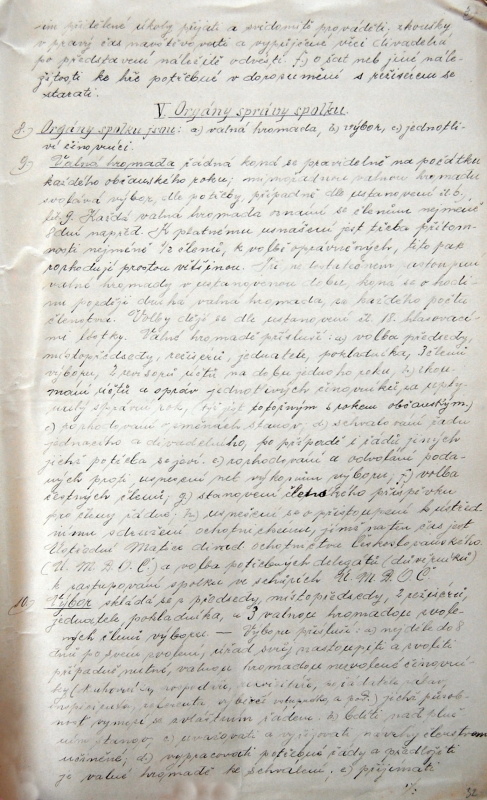 jim přidělené úkoly přijati a svědomitě prováděti, zkoušky
v pravý čas navštěvovati a vypůjčené věci divadelní
po představení náležitě odvésti. f.) o část neb jiné nále-
žitosti ke hře potřebné v dorozumění s režisérem se
starati.
V. Orgány správy spolku.
8.) Orgány spolku jsou: a) valná hromada, b.) výbor, c.) jednotli-
ví činovníci.
9.) Valná hromada řádná koná se pravidelně na počátku
každého občanského roku; mimořádnou valnou hromadu
svolává výbor, dle potřeby, případně dle ustanovení čl. 6,
lit. g. Každá valná hromada oznámí se členům nejméně
8 dní napřed. K platnému usnášení jest třeba přítom-
nosti nejméně 1/2 členů, k volbě oprávněných, jelo pak
rozhoduje prostou většinou. Při nedostatečném zastoupení
valné hromady v ustanovenou dobu, koná se o hodi-
nu později druhá valná hromada, za každého počtu
členstva. Volby dějí se dle ustanovení čl. 18. hlasovací-
mi lístky. Valné hromadě přísluší: a.) volba předsedy,
místopředsedy, režisérů, jednatele, pokladníka, členů
výboru, 2 revisorů účtů na dobu jednoho roku, b.) zkou-
mání účtů a zpráv jednotlivých činovníků za uply-
nulý správní rok, (jenž jest totožným s rokem občanským.)
c.) rozhodování o změnách stanov, d.) schvalování řádu
jednacího a divadelního, po případě i řádů jiných
jichž potřeba se jeví. e.) rozhodování a odvolání poda-
ných proti usnesení neb výkonům výboru, f.) volba
čestných členů, g.) stanovení členského příspěvku
pro členy řádné; h.) usnesení se o přistoupení k ústřed-
nímu sdružení ochotnickému, jímž na ten čas jest
Ústřední Matice divad. ochotnictva Československého
(Ú. M. D. O. Č.) a volba potřebných delegátů (důvěrníků)
k zastupování spolku ve schůzích Ú. M. D. O. Č.
10.) Výbor skládá se z předsedy, místopředsedy, 2 režisérů,
jednatele, pokladníka, a 3 valnou hromadou zvole-
ných členů výboru. — Výboru přísluší: a.) nejdéle do 8
dnů po svém zvolení, úřad svůj nastoupiti a zvoliti
případně nutné, valnou hromadou nezvolené činovní-
ky (knihovníka, hospodáře, revisitáře, pořadatele nebo,
inspicienta, referenta, výběrčí vstupného, a pod.) jichž působ-
nost vymezí se zvláštním řádem. b.) bdíti nad plně-
ním stanov, c.) uvažovati a vyřizovati návrhy členstvem
učiněné, d.) vypracovati potřebné řády a předložiti
je valné hromadě ke schválení. e.) přijímati